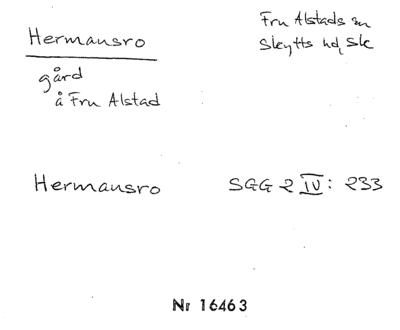 Hermansro
Fru Alstads sn
Skytts hd, Sk
gård
å Fru Alstad
Hermansro SGG 2 IV: 233
Nr 16463